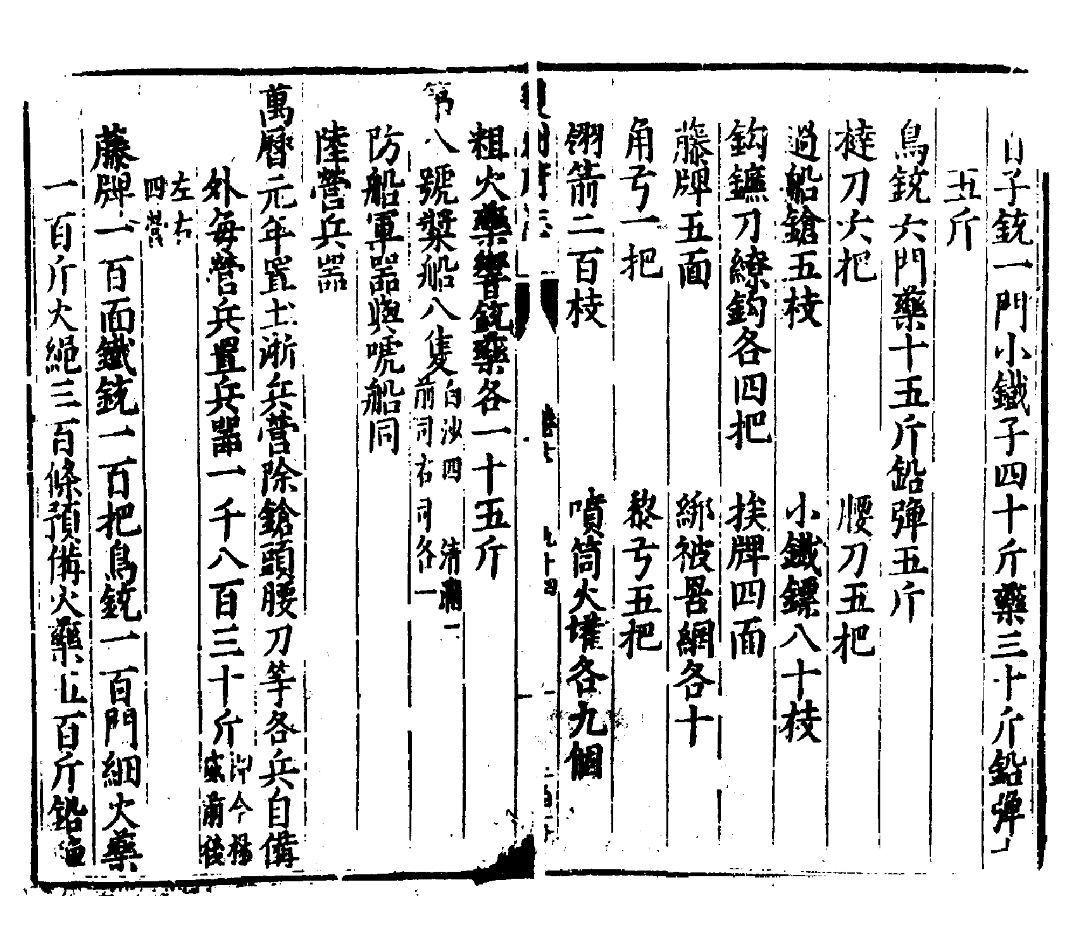 百子銃一門小鐵子四十斤藥三十斤鉛彈
五斤
鳥銃六門藥十五斤鉛彈五斤
撻刀六把 腰刀五把
過船鎗五枝 小鐵鏢八十枝
鈎鐮刀繚鈎各四把 挨牌四面
藤牌五面 綿被罟網各十
角弓一把 黎弓五把
翎箭二百枝 噴筒火礶各九個
卷七 九十四
粗火藥響銃藥各一十五斤
第八號槳船八隻白沙四 清瀾二
前司右司各一
防船軍器與唬船同
陸營兵器
萬曆元年置土浙兵營除鎗頭腰刀等各兵自備
外每營兵置兵器一千八百三十斤 即今標
底前後
左右
四營
藤牌一百面鐵銃一百把鳥銃一百門細火藥
一百斤火繩三百條預備火藥五百斤鉛